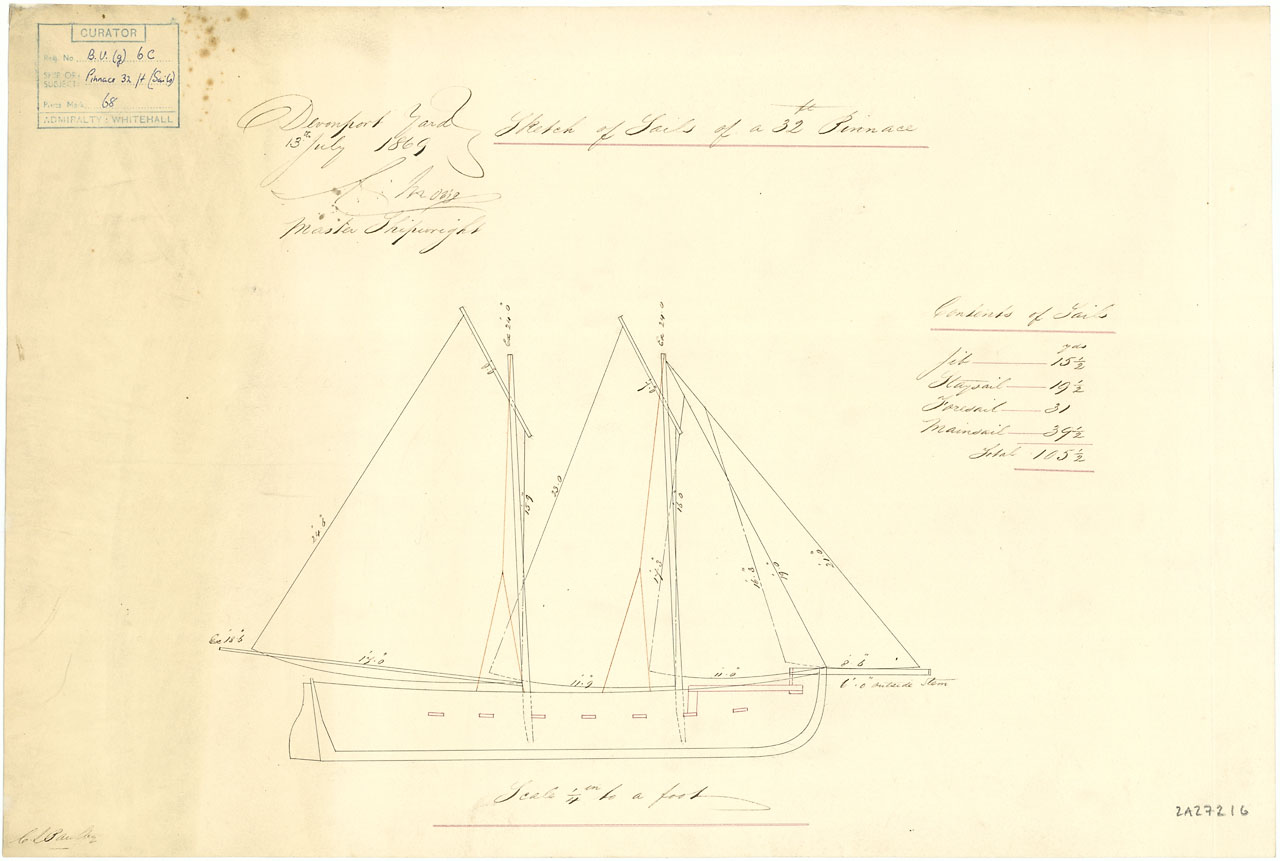 CURATOR
Reg. No. B.V. (g) 6C
SHIP OR SUBJECT: Pinnace 32 ft (Sails)
Print Mark. 68
ADMIRALTY : WHITEHALL
Devonport Yard
13th July 1869
Master Shipwright
Sketch of Sails of a 32 ft Pinnace
Contents of Sails
yds
Jib 15½
Staysail 19½
Foresail 31
Mainsail 39½
Total 105½
Ex 24.0
Ex 24.0
23.0
15.9
15.0
17.3
16.3
19.0
21.0
24.6
Ex 18.6
17.0
11.9
11.0
8.6
6'.0" outside Stem
Scale ¼ in to a foot
2A27216